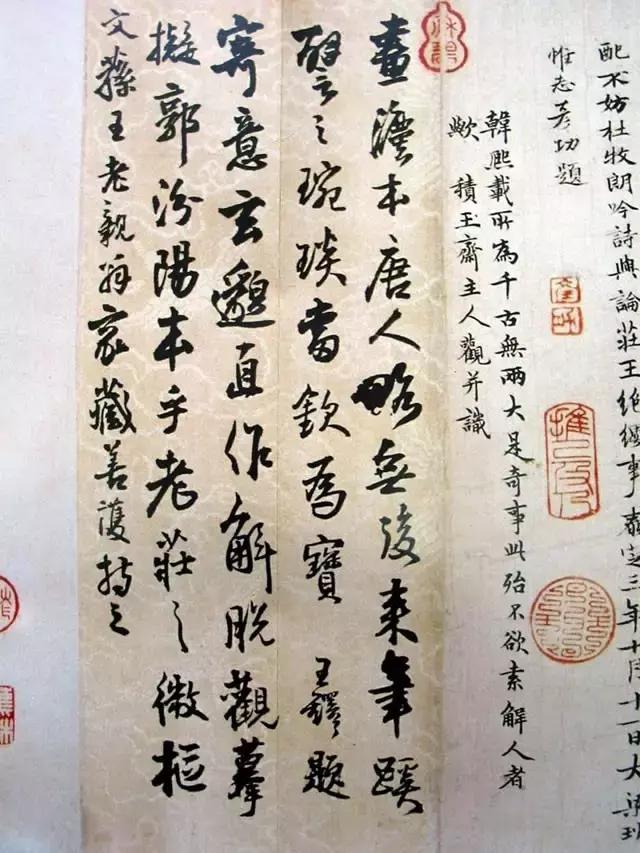 配不妨杜牧朗吟詩與論莊王絕纓事泰定三年十月十一日大梁班
惟志彦功題
韓熙載所為千古無兩大是奇事此殆不欲索解人者
歟積玉齋主人觀并識
畫灋本唐人略無後來筆蹊
譬之琬琰當欽為寶 王鐸題
寄意玄邈直作解脫觀摹
擬郭汾陽本乎老莊之微樞
文蓀王老親翁家藏善護持之